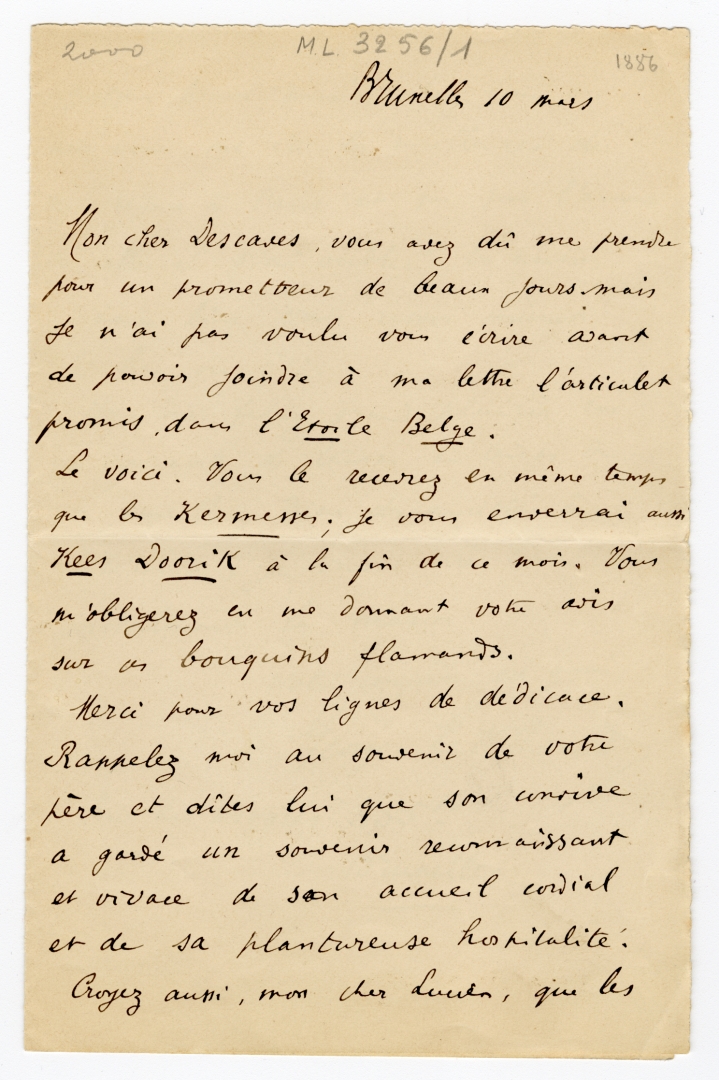 2000
ML 3256/1
1886
Bruxelles 10 mars
Mon cher Descaves, vous avez dû me prendre
pour un prometteur de beaux jours mais
je n'ai pas voulu vous écrire avant
de pouvoir joindre à ma lettre l'articulet
promis, dans l'Etoile Belge.
Le voici. Vous le recevrez en même temps
que les Kermesses; je vous enverrai aussi
Kees Doorik à la fin de ce mois. Vous
m'obligerez en me donnant votre avis
sur ces bouquins flamands.
Merci pour vos lignes de dédicace.
Rappelez moi au souvenir de votre
père et dites lui que son convive
a gardé un souvenir reconnaissant
et vivace de son accueil cordial
et de sa plantureuse hospitalité.
Croyez aussi, mon cher Lucien, que les